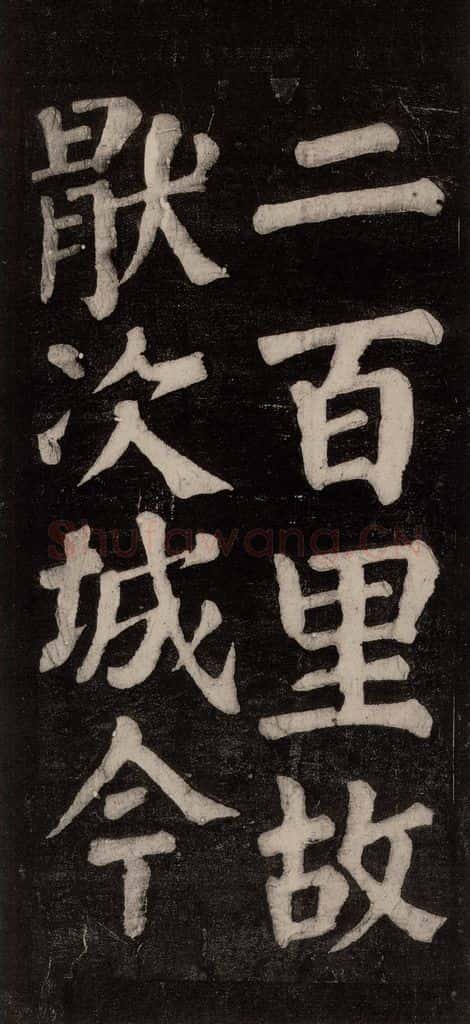 二百里故
猒次城今
Shufawang.CN